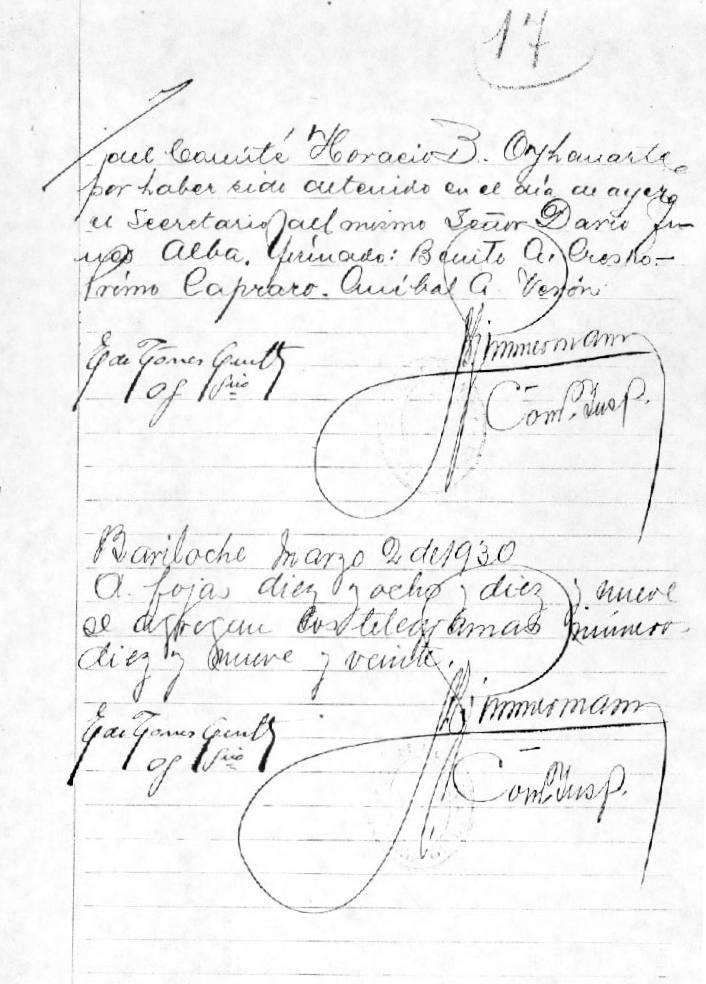 17
del Comité Horacio B. Oyhanarte
por haber sido detenido en el día de ayer
el Secretario del mismo Señor Dario
Alba. firmado: Benito A. Crespo-
Primo Capraro. Anibal A. Verón
Zimmermann
E de Torres
Com. Insp.
of
Bariloche Marzo 2 de 1930
A fojas diez y ocho y diez y nueve
se agregan los telegramas número
diez y nueve y veinte.
Zimmermann
E de Torres
of
Com. Insp.